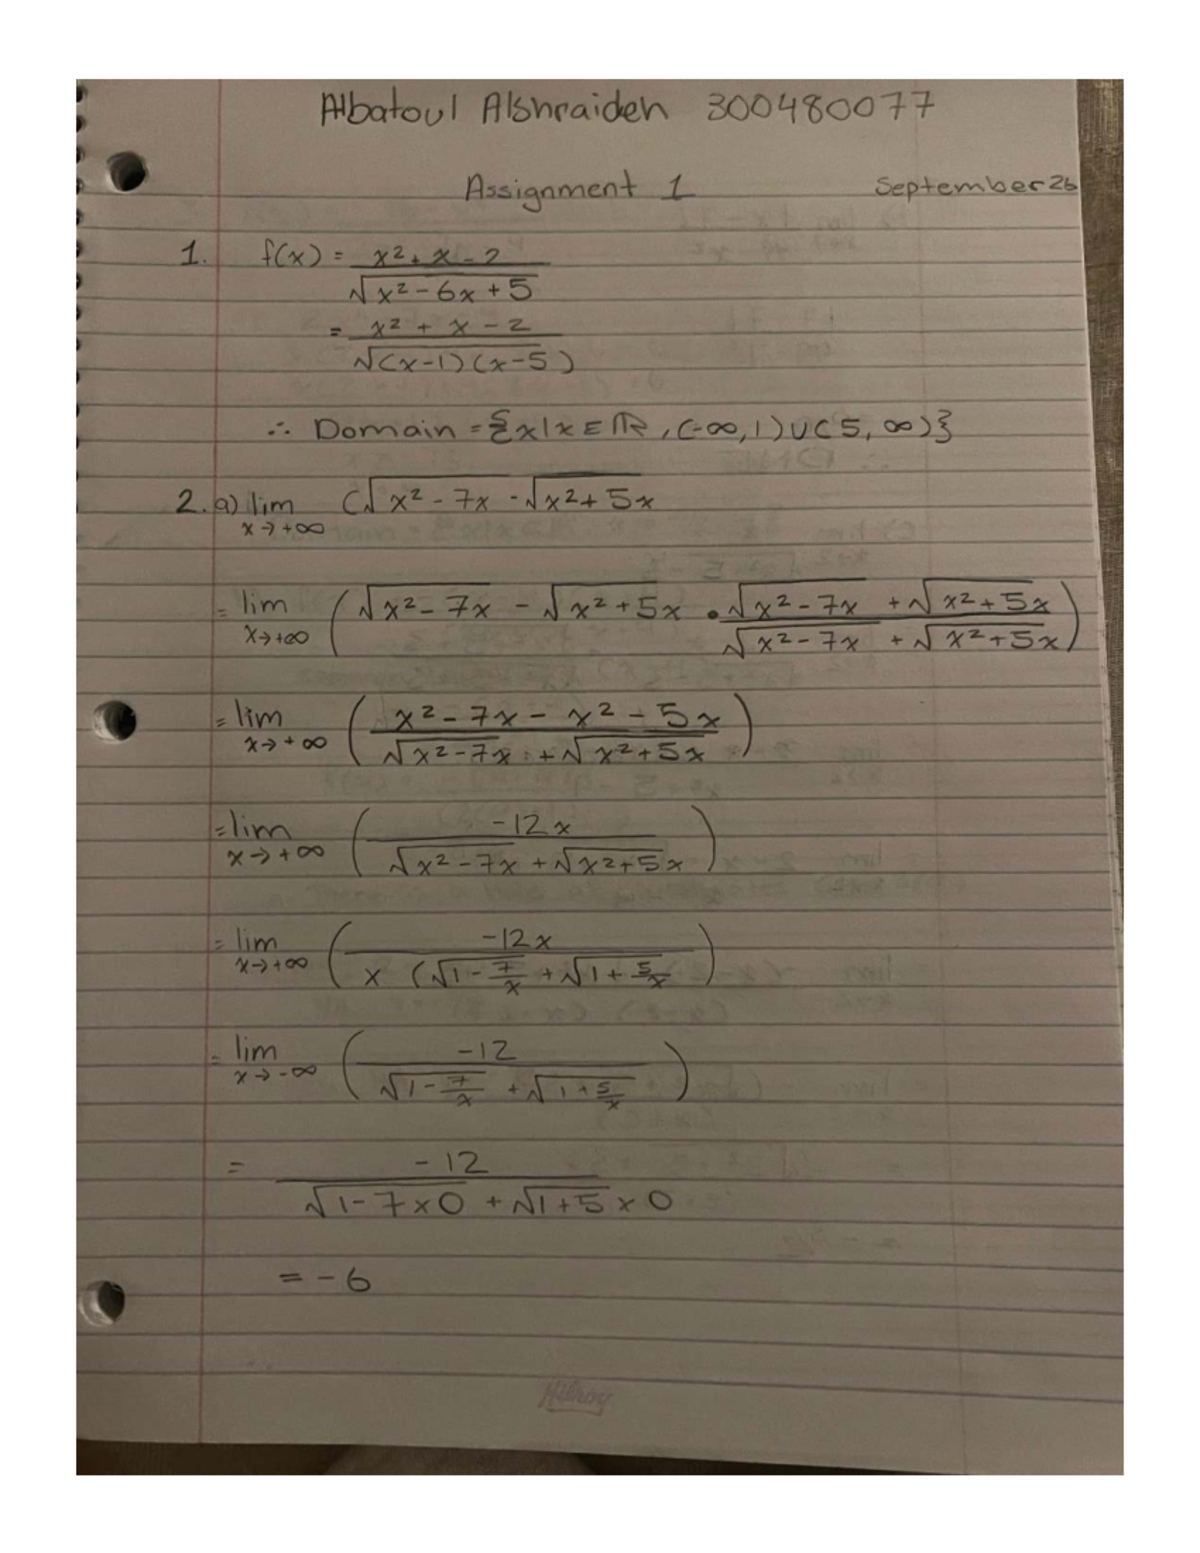 Albatoul Alshraideh 300480077
Assignment 1 September 26
1. f(x) = x² + x - 2 / √x² - 6x + 5
= x² + x - 2 / √(x-1)(x-5)
∴ Domain = {x|x ∈ ℝ, (-∞, 1) ∪ (5, ∞)}
2. a) lim x→+∞ (√x² - 7x - √x² + 5x
= lim x→+∞ (√x² - 7x - √x² + 5x • √x² - 7x + √x² + 5x / √x² - 7x + √x² + 5x)
= lim x→+∞ (x² - 7x - x² - 5x / √x² - 7x + √x² + 5x)
= lim x→+∞ (-12x / √x² - 7x + √x² + 5x)
= lim x→+∞ (-12x / x (√1 - 7/x + √1 + 5/x)
= lim x→-∞ (-12 / √1 - 7/x + √1 + 5/x)
= -12 / √1 - 7 × 0 + √1 + 5 × 0
= -6
Hilroy